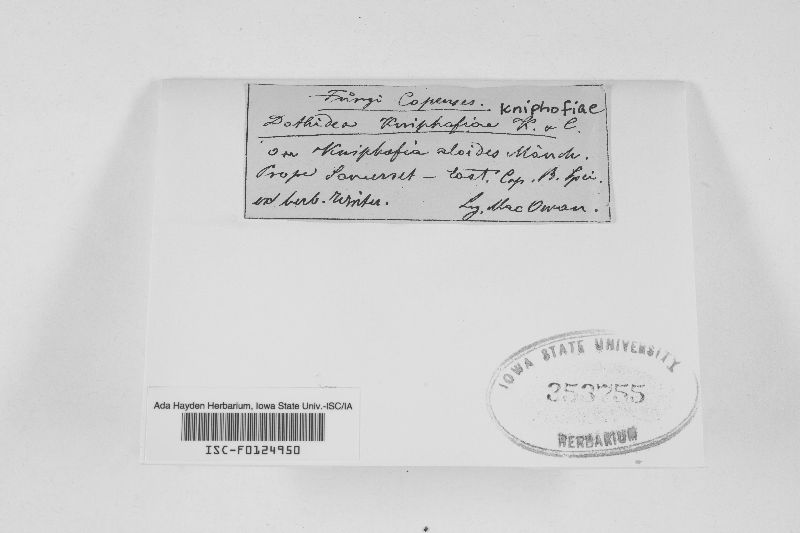 Fungi Capenses. Kniphofiae
Dothidea Kniphofiae K. & C.
On Kniphofia aloides Mönch.
Prope Somerset – East. Cap. B. Spei.
ex herb. Winter. Lg. Mac Owan.
IOWA STATE UNIVERSITY
353755
HERBARIUM
Ada Hayden Herbarium, Iowa State Univ.-ISC/IA
ISC-F0124950